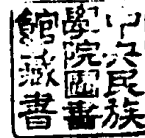 中央民族
學院圖書
館藏書